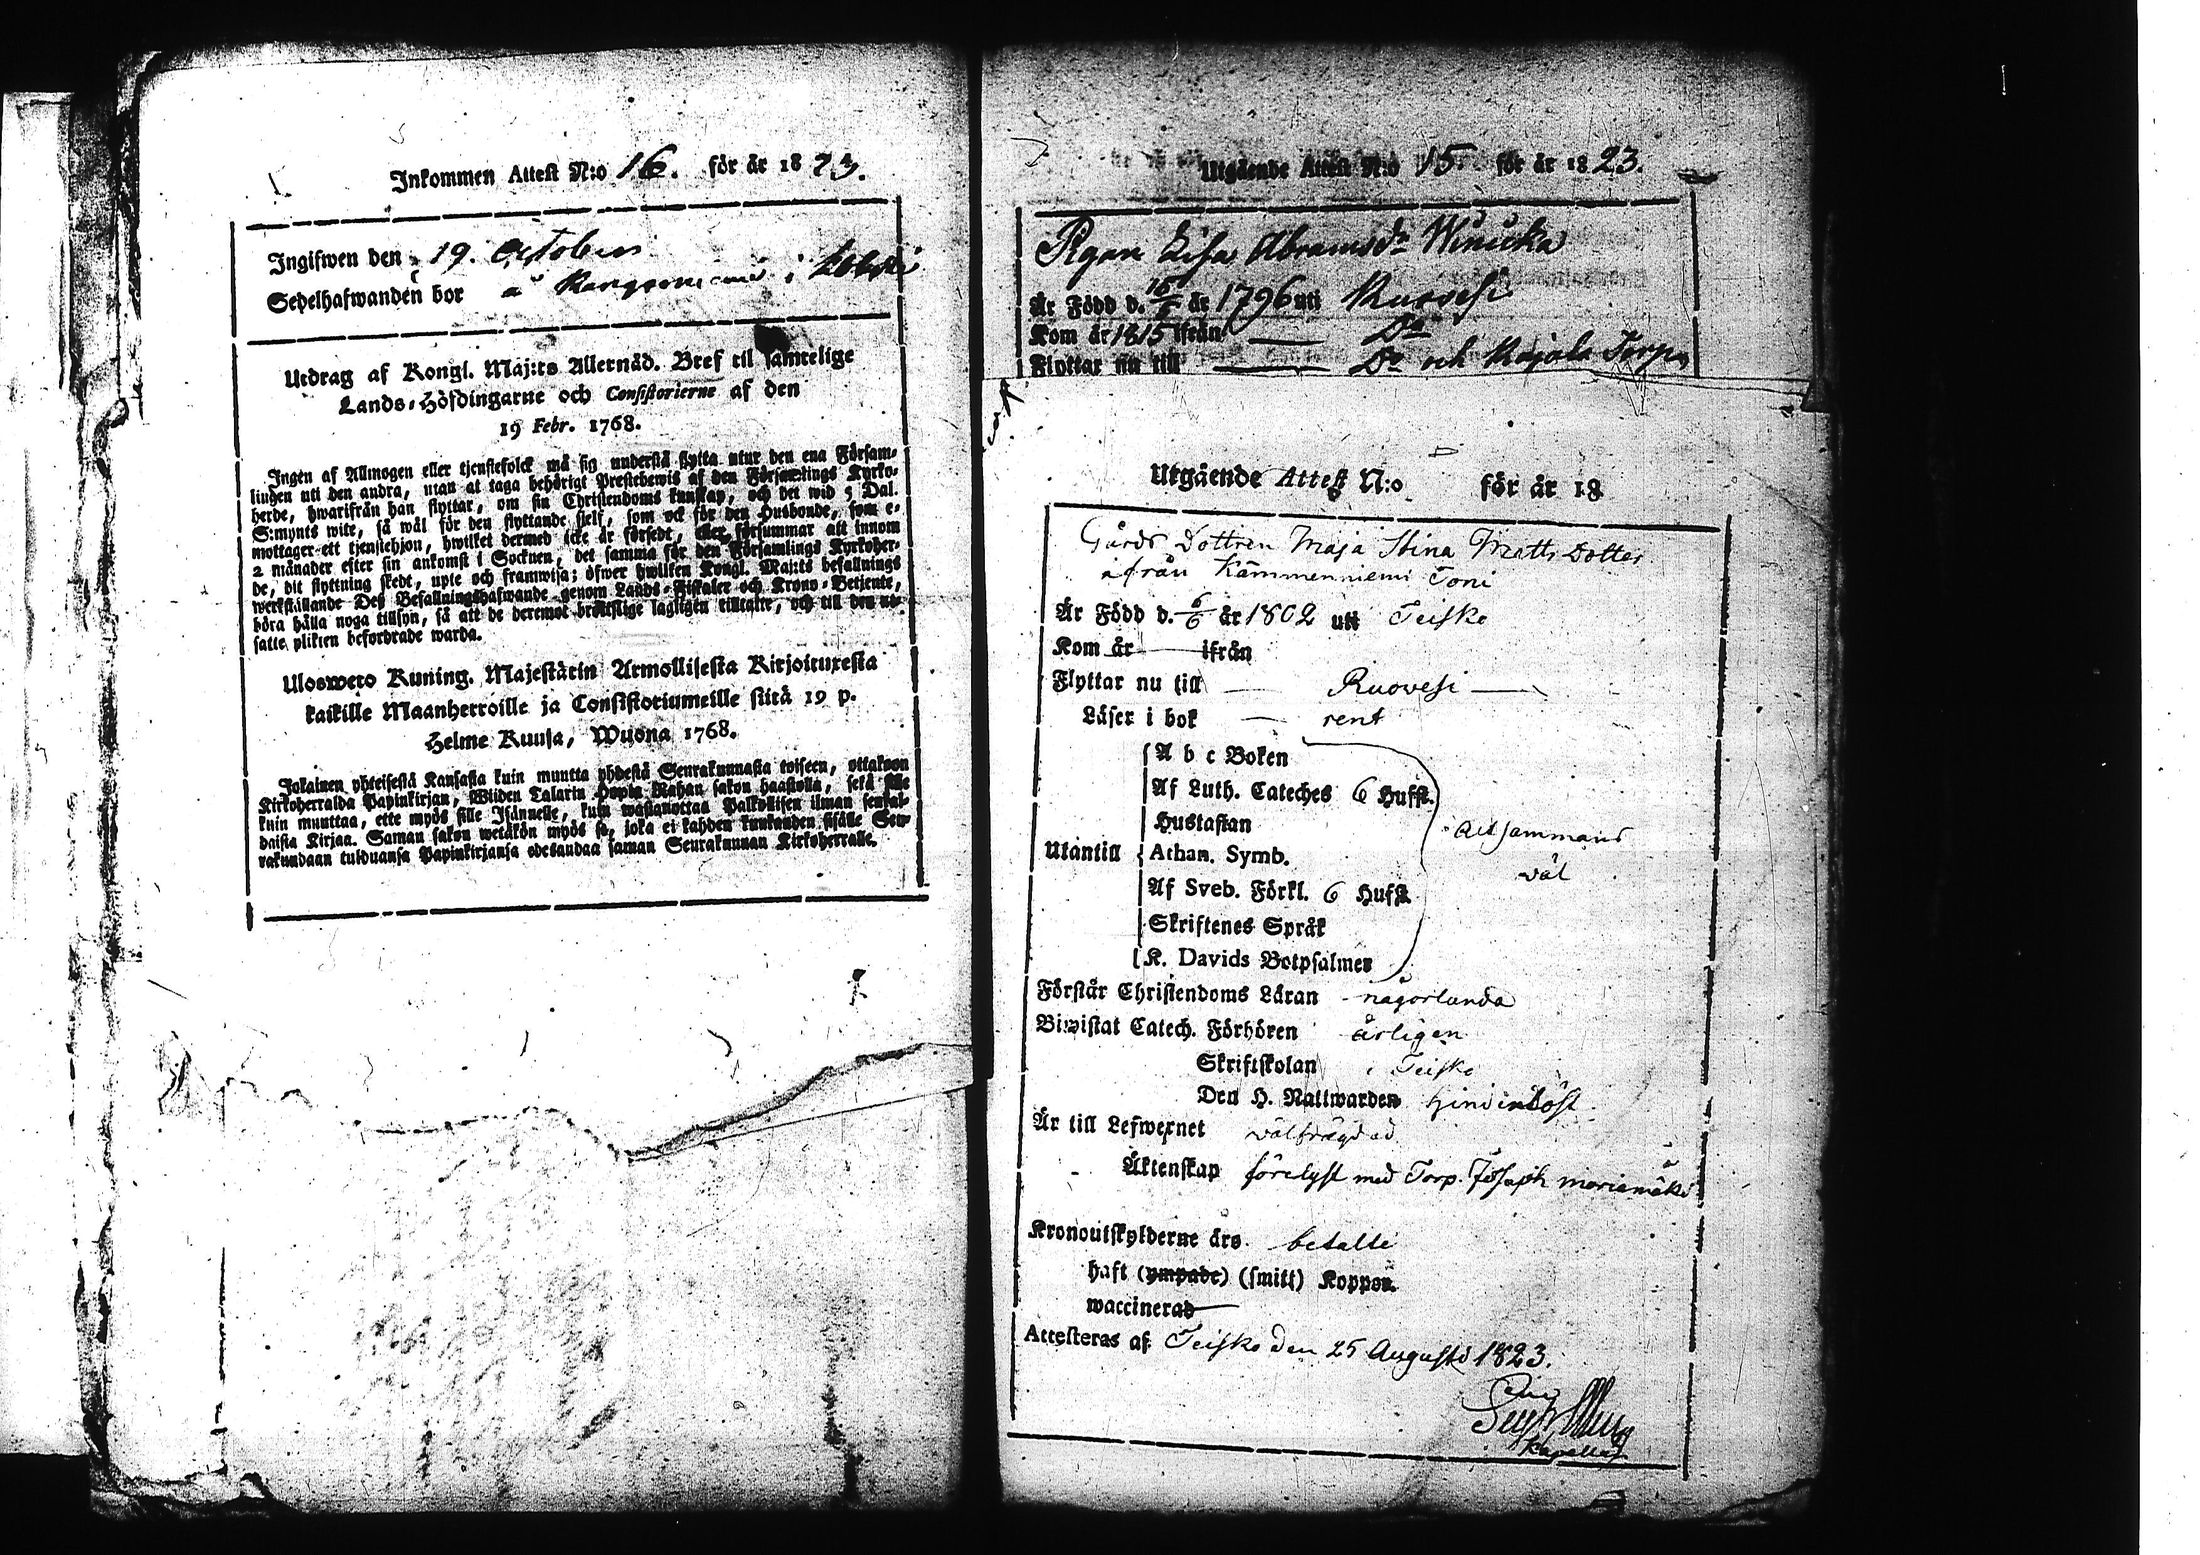 Inkommen Attest N:o 16. för år 1823.
Ingifwen den 19. October
Sedelhafwanden bor å i
Utdrag af Kongl. Maj:ts Allernåd. Bref til samtelige
Lands-Höfdingarne och Consistorierne af den
19 Febr. 1768.
Ingen af Allmogen eller tjenstefolck må sig understå flytta utur den ena Försam-
lingen uti den andra, utan at taga behörigt Prestebewis af den Församlings Kyrko-
herde, hwarifrån han flyttar, om sin Christendoms kunskap, och det wid 5 Dal.
S:mynts wite, så wäl för den flyttande sjelf, som ock för den Husbonde, som e-
mottager ett tjenstehjon, hwilket dermed icke är försedt, eller försummar att innom
2 månader efter sin ankomst i Socknen, det samma för den Församlings Kyrkoher-
de, dit flyttning skedt, upte och framwisa; öfwer hwilken Kongl. Maj:ts befallnings
werkställande Deß Befallningshafwande genom Lands-Fiskaler och Krono-Betjente,
böra hålla noga tillsyn, så att de deremot brottslige lagligen tilltalte, och till den ut-
satte plikten befordrade warda.
Ulosweto Kuning. Majestätin Armollisesta Kirjoituxesta
kaikille Maanherroille ja Consistoriumeille siitä 19 p.
Helme Kuusa, Wuona 1768.
Jokainen yhteisestä Kansasta kuin muutta yhdestä Seurakunnasta toiseen, ottakoon
Kirkoherralda Papinkirjan, Wiiden Talarin Hopia Rahan sakon haastolla, sekä sille
kuin muuttaa, ette myös sille Isännelle, kuin wastanottaa Palkollisen ilman senkal-
daista Kirjaa. Saman sakon wetäkön myös se, joka ei kahden kuukauden sisälle Seu-
rakundaan tulduansa Papinkirjansa edesandaa saman Seurakunnan Kirkoherralle.
Utgående Attest N:o 15 för år 1823.
Pigan Lisa Abramsdr
Är Född d. år 1796 uti Ruovesi
Kom år 1815 ifrån — Do
Flyttar nu till — Do och Torp
Utgående Attest N:o för år 18
Gårds Dottren Maja Stina Matts Dotter
ifrån Kämmenniemi Toni
Är Född d. 6/6 år 1802 uti Teisko
Kom år — ifrån
Flyttar nu till — Ruovesi —
Läser i bok — rent
A b c Boken
Af Luth. Cateches 6 Hufst.
Hustaflan
allsammans
Utantill Athan. Symb.
väl
Af Sveb. Förkl. 6 Hufst.
Skriftenes Språk
K. Davids Botpsalmer
Förstår Christendoms Läran någorlunda
Biwistat Catech. Förhören årligen
Skriftskolan i Teisko
Den H. Nattwarden
Är till Lefwernet välfrägdad
Äktenskap förelyst med Torp. Josaph
Kronoutskylderne äro betalte
haft (ympade) (smitt) Koppor.
waccinerad
Attesteras af Teisko den 25 Augusti 1823.